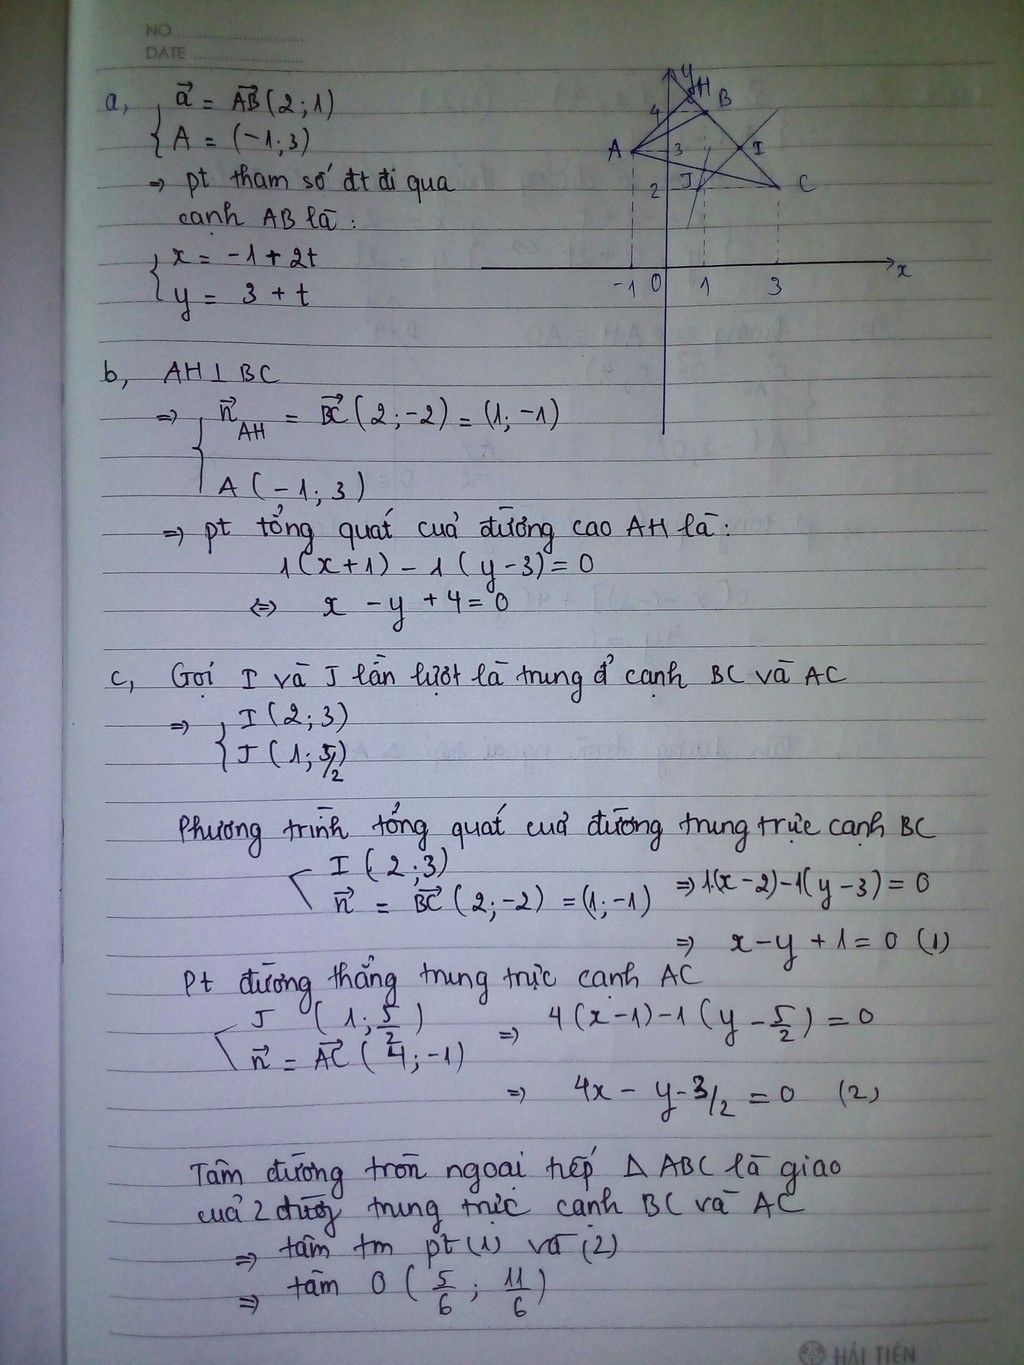 NO.
DATE
a, { a⃗ = AB⃗ (2; 1)
A = (-1; 3)
=> pt tham số đt đi qua
cạnh AB là:
{ x = -1 + 2t
y = 3 + t
y
H
B
4
A
3
I
2
J
C
-1 0 1 3 x
b, AH ⊥ BC
=> { n⃗AH = BC⃗ (2; -2) = (1; -1)
A (-1; 3)
=> pt tổng quát của đường cao AH là:
1(x+1) - 1(y-3) = 0
<=> x - y + 4 = 0
c, Gọi I và J lần lượt là trung đ' cạnh BC và AC
=> { I (2; 3)
J (1; 5/2)
Phương trình tổng quát của đường trung trực cạnh BC
I (2; 3)
n⃗ = BC⃗ (2; -2) = (1; -1) => 1.(x-2) - 1(y-3) = 0
=> x - y + 1 = 0 (1)
Pt đường thẳng trung trực cạnh AC
J (1; 5/2) => 4(x-1) - 1(y - 5/2) = 0
n⃗ = AC⃗ (4; -1)
=> 4x - y - 3/2 = 0 (2)
Tâm đường tròn ngoại tiếp Δ ABC là giao
của 2 đường trung trực cạnh BC và AC
=> tâm tm pt (1) và (2)
=> tâm O (5/6; 11/6)
HẢI TIẾN